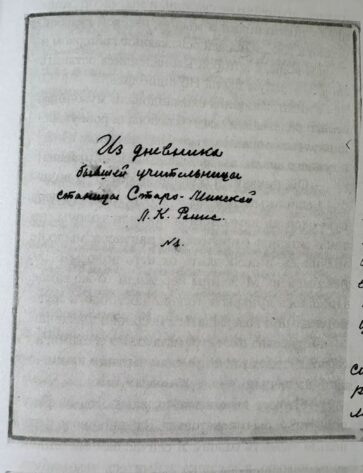 Из дневника
бывшей учительницы
станицы Старо-Минской
Л. К.
№1.